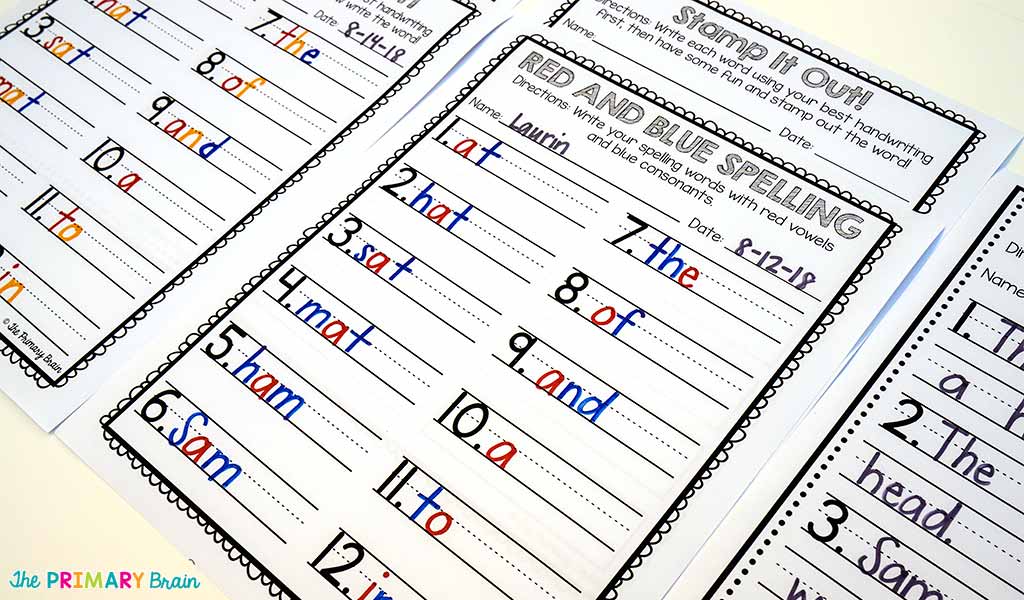 nat
3. sat
mat
7. the
8. of
9. and
10. a
11. to
in
© The Primary Brain
Date: 8-14-18
Stamp It Out!
Directions: Write each word using your best handwriting
first, then have some fun and stamp out the word!
Name:
Date:
RED AND BLUE SPELLING
Directions: Write your spelling words with red vowels
and blue consonants.
Name: Laurin
Date: 8-12-18
1. at
2. hat
3. sat
4. mat
5. ham
6. Sam
7. the
8. of
9. and
10. a
11. to
12.
Name
1.
a
2. The
head.
3. Sam
The PRIMARY Brain